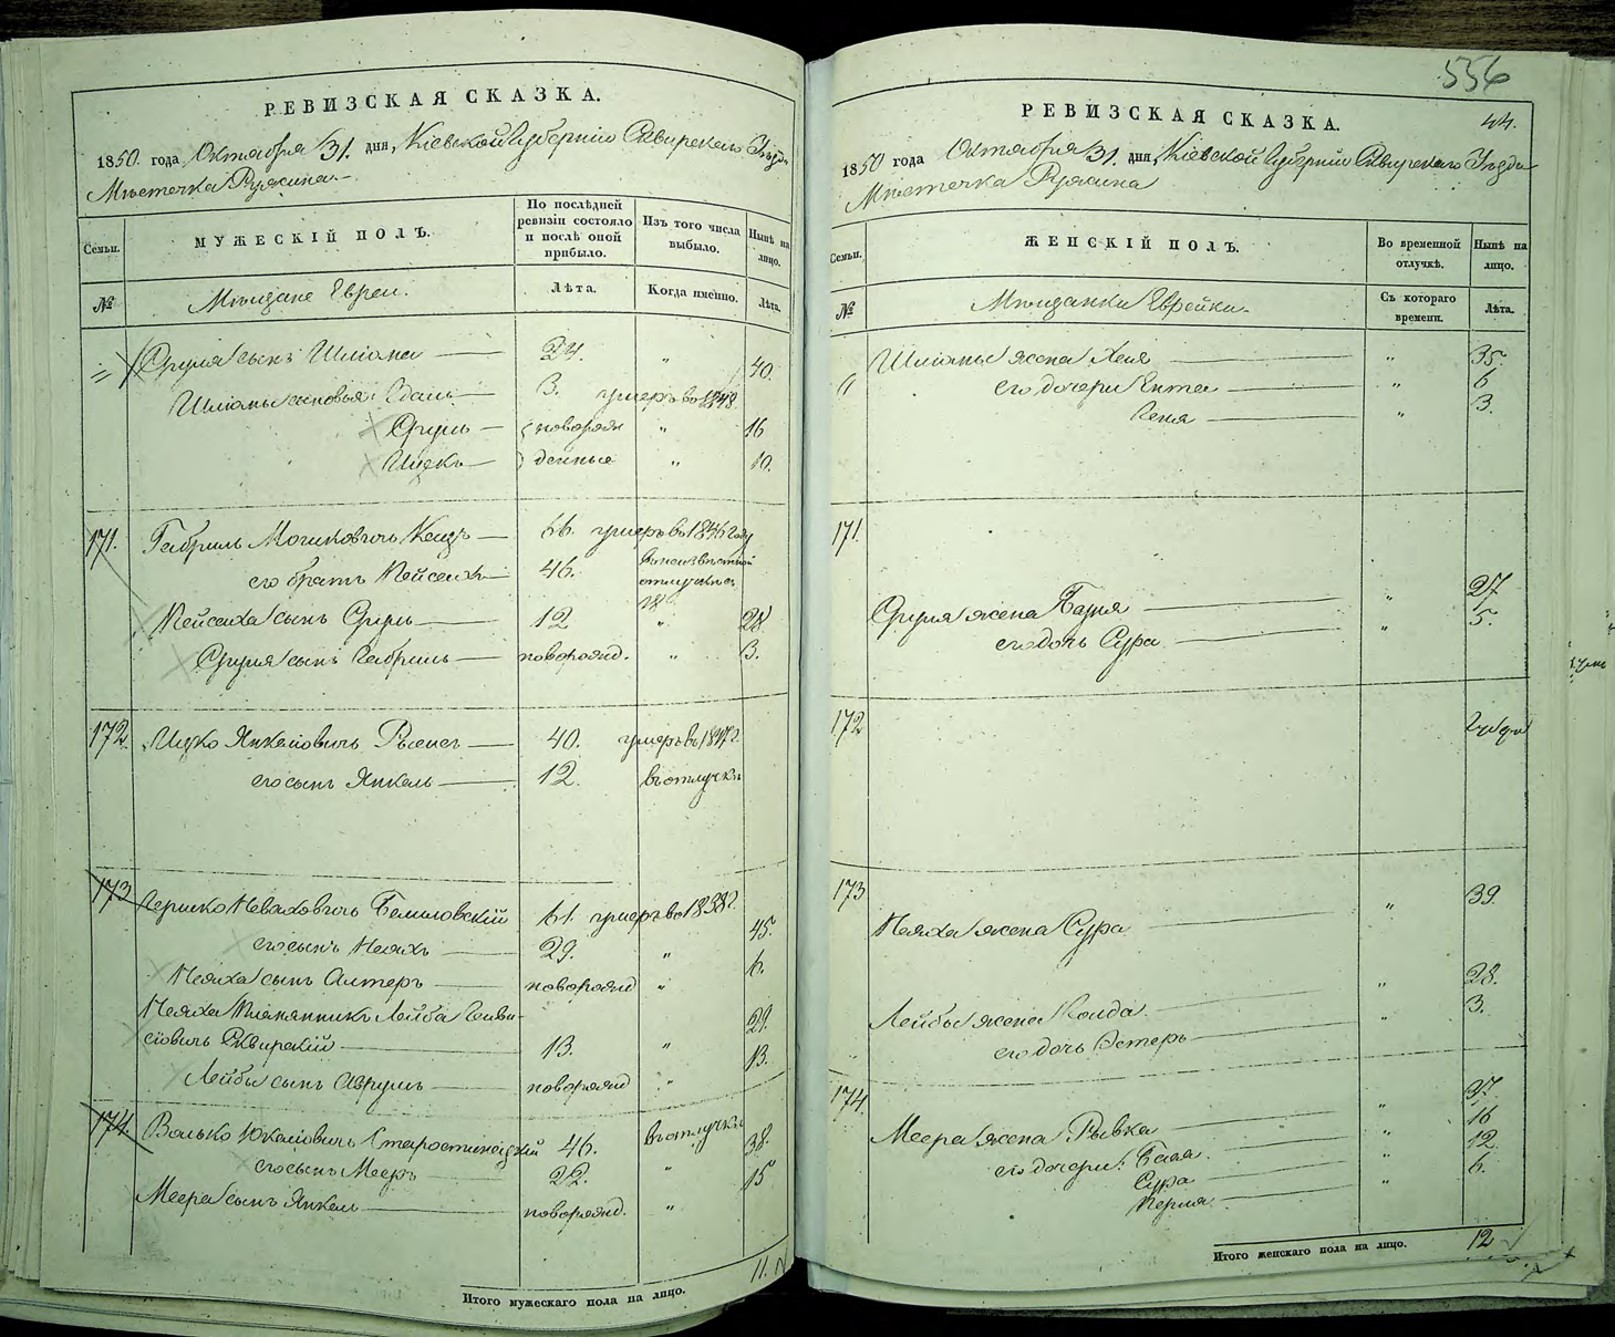 РЕВИЗСКАЯ СКАЗКА.
1850. года Октября 31. дня, Кіевской Губерніи Сквирскаго Уѣзда
Мѣстечка Ружина
Семьи. МУЖЕСКІЙ ПОЛЪ. По послѣдней ревизіи состояло и послѣ оной прибыло. Изъ того числа выбыло. Нынѣ на лицо.
№ Мѣщане Евреи. Лѣта. Когда именно. Лѣта.
Сруля сынъ Шліома 24. " 40.
Шліомы сыновья: 3. умеръ во 1848
Сруль новорож " 16
Ицекъ денные " 10.
171. Габриль Мошковичъ Кацъ 66. умеръ въ 1846 году
его братъ Пейсахъ 46. въ неизвѣстной отлучкѣ съ
Пейсаха сынъ Сруль 12 " 28
Сруля сынъ Габриль новорожд. " 3.
172. Ицко Янкелевичъ 40. умеръ въ
его сынъ Янкель 12. въ отлучкѣ
173 Гершко 61. умеръ во 1838
его сынъ 29. " 45.
сынъ Алтеръ новорожд " 6.
племянникъ Лейба
Сквирскій 13. " 29.
Лейбы сынъ Аврумъ новорожд " 13.
174. Волько 46. въ отлучкѣ
его сынъ Мееръ 22. " 38.
Меера сынъ Янкель новорожд. " 15
Итого мужескаго пола на лицо. 11.
556
РЕВИЗСКАЯ СКАЗКА. 44.
1850 года Октября 31. дня, Кіевской Губерніи Сквирскаго Уѣзда
Мѣстечка Ружина
Семьи. ЖЕНСКІЙ ПОЛЪ. Во временной отлучкѣ. Нынѣ на лицо.
№ Мѣщанки Еврейки. Съ котораго времени. Лѣта.
Шліомы жена Хая " 35.
его дочери Ента " 6
Геня " 3.
171.
Сруля жена " 27
его дочь Сура " 5.
172
173
жена Сура " 39.
Лейбы жена " 28.
его дочь Эстеръ " 3.
174.
Меера жена Рывка " 37.
его дочери: Бася " 16
Сура " 12
Перля " 6.
Итого женскаго пола на лицо. 12